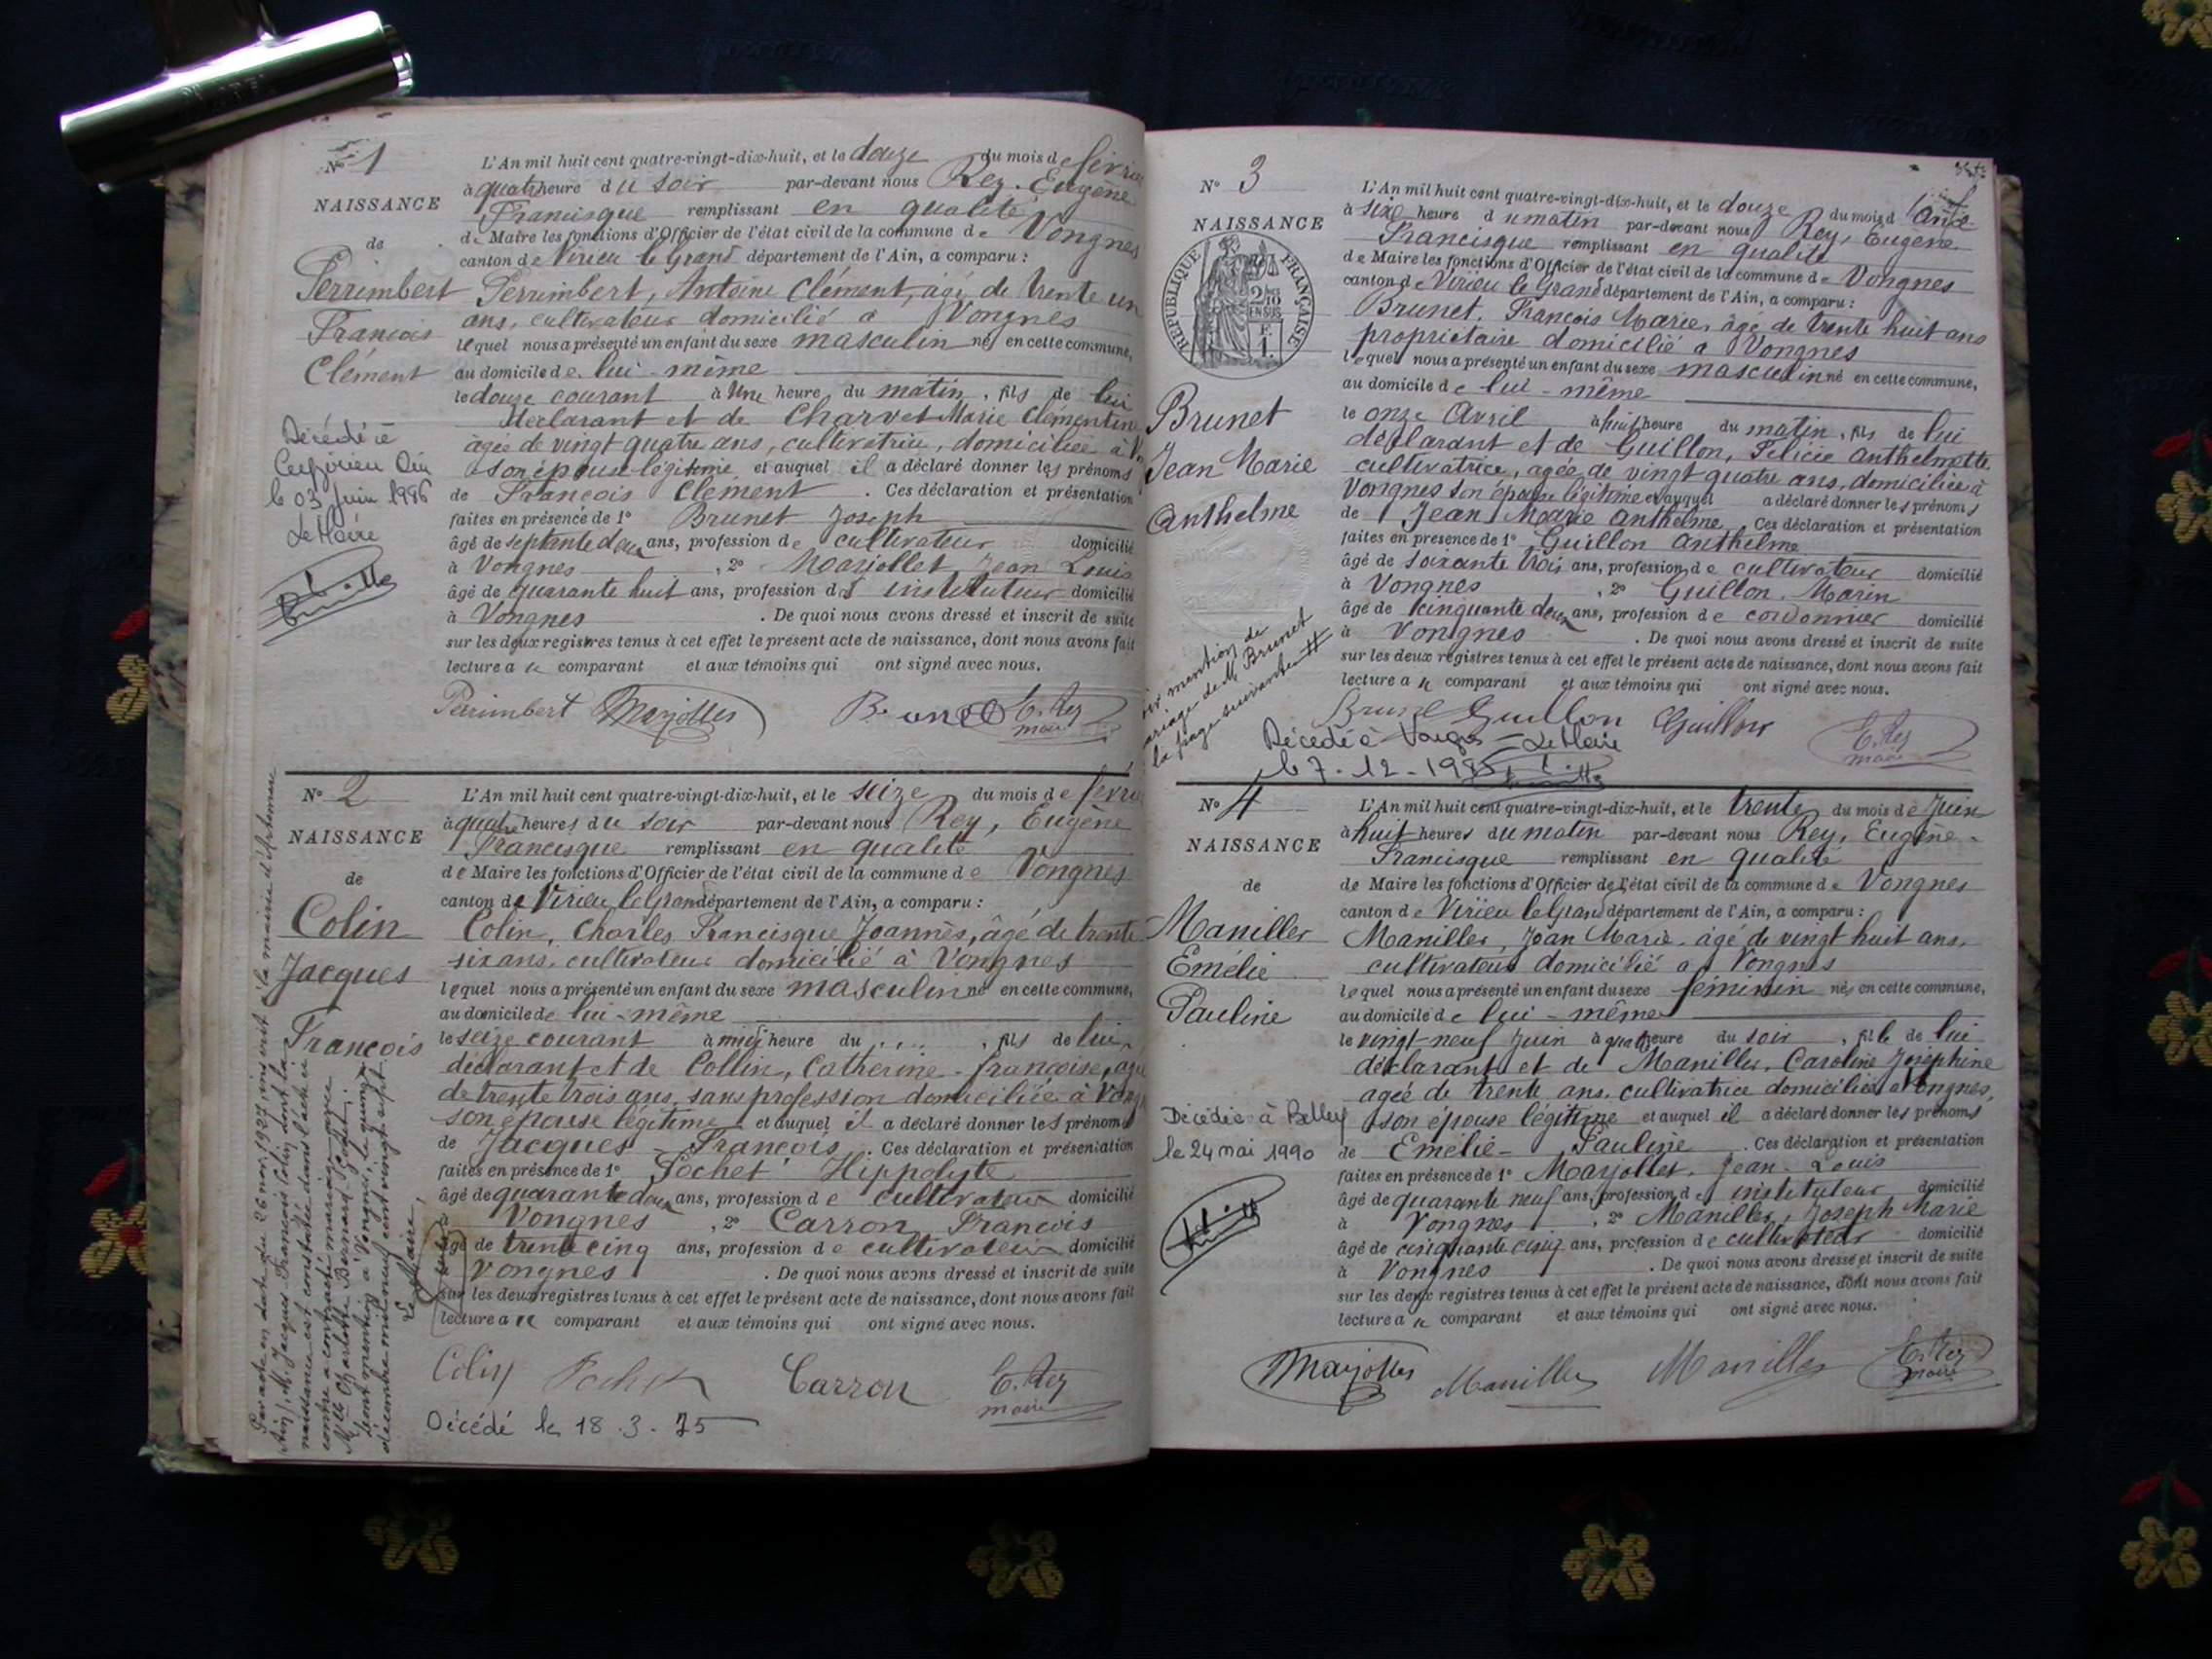 N° 1
NAISSANCE
de
Perrimbert
François
Clément
Décédé à
le 03 juin 1996
Le Maire
L'An mil huit cent quatre-vingt-dix-huit, et le douze du mois de février
à quatre heure du soir par-devant nous Rey, Eugène
Francisque remplissant en qualité
de Maire les fonctions d'Officier de l'état civil de la commune de Vongnes
canton de Virieu le Grand département de l'Ain, a comparu :
Perrimbert, Antoine Clément, âgé de trente un
ans, cultivateur domicilié à Vongnes
lequel nous a présenté un enfant du sexe masculin né en cette commune,
au domicile de lui-même
le douze courant à une heure du matin, fils de lui
déclarant et de Charvet Marie Clémentine
âgée de vingt quatre ans, cultivatrice, domiciliée à
son épouse légitime et auquel il a déclaré donner les prénoms
de François Clément. Ces déclaration et présentation
faites en présence de 1° Brunet Joseph
âgé de septante deux ans, profession de cultivateur domicilié
à Vongnes, 2° Marjollet Jean Louis
âgé de quarante huit ans, profession d' instituteur domicilié
à Vongnes. De quoi nous avons dressé et inscrit de suite
sur les deux registres tenus à cet effet le présent acte de naissance, dont nous avons fait
lecture a u comparant et aux témoins qui ont signé avec nous.
Perrimbert Marjollet Brunet E. Rey
maire
N° 2
NAISSANCE
de
Colin
Jacques
François
Par acte en date du 26 nov. 1927, inscrit à la mairie d'Artemare
(Ain), M. Jacques François Colin dont la
naissance est constatée dans l'acte ci
contre a contracté mariage avec
Mlle Charlotte Bernard
Dont mention à Vongnes, le quinze
décembre mil neuf cent vingt sept.
Le Maire,
L'An mil huit cent quatre-vingt-dix-huit, et le seize du mois de février
à quatre heures du soir par-devant nous Rey, Eugène
Francisque remplissant en qualité
de Maire les fonctions d'Officier de l'état civil de la commune de Vongnes
canton de Virieu le Grand département de l'Ain, a comparu :
Colin, Charles Francisque Joannès, âgé de trente
six ans, cultivateur domicilié à Vongnes
lequel nous a présenté un enfant du sexe masculin né en cette commune,
au domicile de lui-même
le seize courant à midi heure du ...., fils de lui
déclarant et de Collin, Catherine françoise, agée
de trente trois ans, sans profession domiciliée à Vongnes
son épouse légitime et auquel il a déclaré donner les prénoms
de Jacques - François. Ces déclaration et présentation
faites en présence de 1° Pochet Hippolyte
âgé de quarante deux ans, profession de cultivateur domicilié
Vongnes, 2° Carron, François
âgé de trente cinq ans, profession de cultivateur domicilié
Vongnes. De quoi nous avons dressé et inscrit de suite
sur les deux registres tenus à cet effet le présent acte de naissance, dont nous avons fait
lecture a u comparant et aux témoins qui ont signé avec nous.
Colin Pochet Carron E. Rey
maire
Décédé le 18.3.75
N° 3
NAISSANCE
RÉPUBLIQUE FRANÇAISE
2/10 EN SUS
Brunet
Jean Marie
Anthelme
voir mention de
mariage de M. Brunet
la page suivante
L'An mil huit cent quatre-vingt-dix-huit, et le douze du mois d'
à sixe heure du matin par-devant nous Rey, Eugène
Francisque remplissant en qualité
de Maire les fonctions d'Officier de l'état civil de la commune de Vongnes
canton de Virieu le Grand département de l'Ain, a comparu :
Brunet, François Marie, âgé de trente huit ans
propriétaire domicilié à Vongnes
lequel nous a présenté un enfant du sexe masculin né en cette commune,
au domicile de lui-même
le onze Avril à huit heure du matin, fils de lui
déclarant et de Guillon, Félicie Anthelmette
cultivatrice, agée de vingt quatre ans, domiciliée à
Vongnes son épouse légitime et auquel a déclaré donner les prénoms
de Jean Marie Anthelme. Ces déclaration et présentation
faites en présence de 1° Guillon Anthelme
âgé de soixante trois ans, profession de cultivateur domicilié
à Vongnes, 2° Guillon, Marin
âgé de cinquante deux ans, profession de cordonnier domicilié
à Vongnes. De quoi nous avons dressé et inscrit de suite
sur les deux registres tenus à cet effet le présent acte de naissance, dont nous avons fait
lecture a u comparant et aux témoins qui ont signé avec nous.
Brunet Guillon Guillon E. Rey
maire
Décédé à Vongnes Le Maire
le 7.12.198
N° 4
NAISSANCE
de
Maniller
Emélie
Pauline
Décédée à Belley
le 24 mai 1990
L'An mil huit cent quatre-vingt-dix-huit, et le trente du mois de Juin
à huit heures du matin par-devant nous Rey, Eugène
Francisque remplissant en qualité
de Maire les fonctions d'Officier de l'état civil de la commune de Vongnes
canton de Virieu le Grand département de l'Ain, a comparu :
Maniller, Jean Marie, âgé de vingt huit ans,
cultivateur domicilié à Vongnes
lequel nous a présenté un enfant du sexe féminin né en cette commune,
au domicile de lui-même
le vingt-neuf Juin à quatre heure du soir, fille de lui
déclarant et de Maniller, Caroline Joséphine
agée de trente ans, cultivatrice domiciliée à Vongnes,
son épouse légitime et auquel il a déclaré donner les prénoms
de Emélie - Pauline. Ces déclaration et présentation
faites en présence de 1° Marjollet, Jean-Louis
âgé de quarante neuf ans, profession d' instituteur domicilié
à Vongnes, 2° Maniller, Joseph Marie
âgé de cinquante cinq ans, profession de cultivateur domicilié
à Vongnes. De quoi nous avons dressé et inscrit de suite
sur les deux registres tenus à cet effet le présent acte de naissance, dont nous avons fait
lecture a u comparant et aux témoins qui ont signé avec nous.
Marjollet Maniller Maniller E. Rey
maire